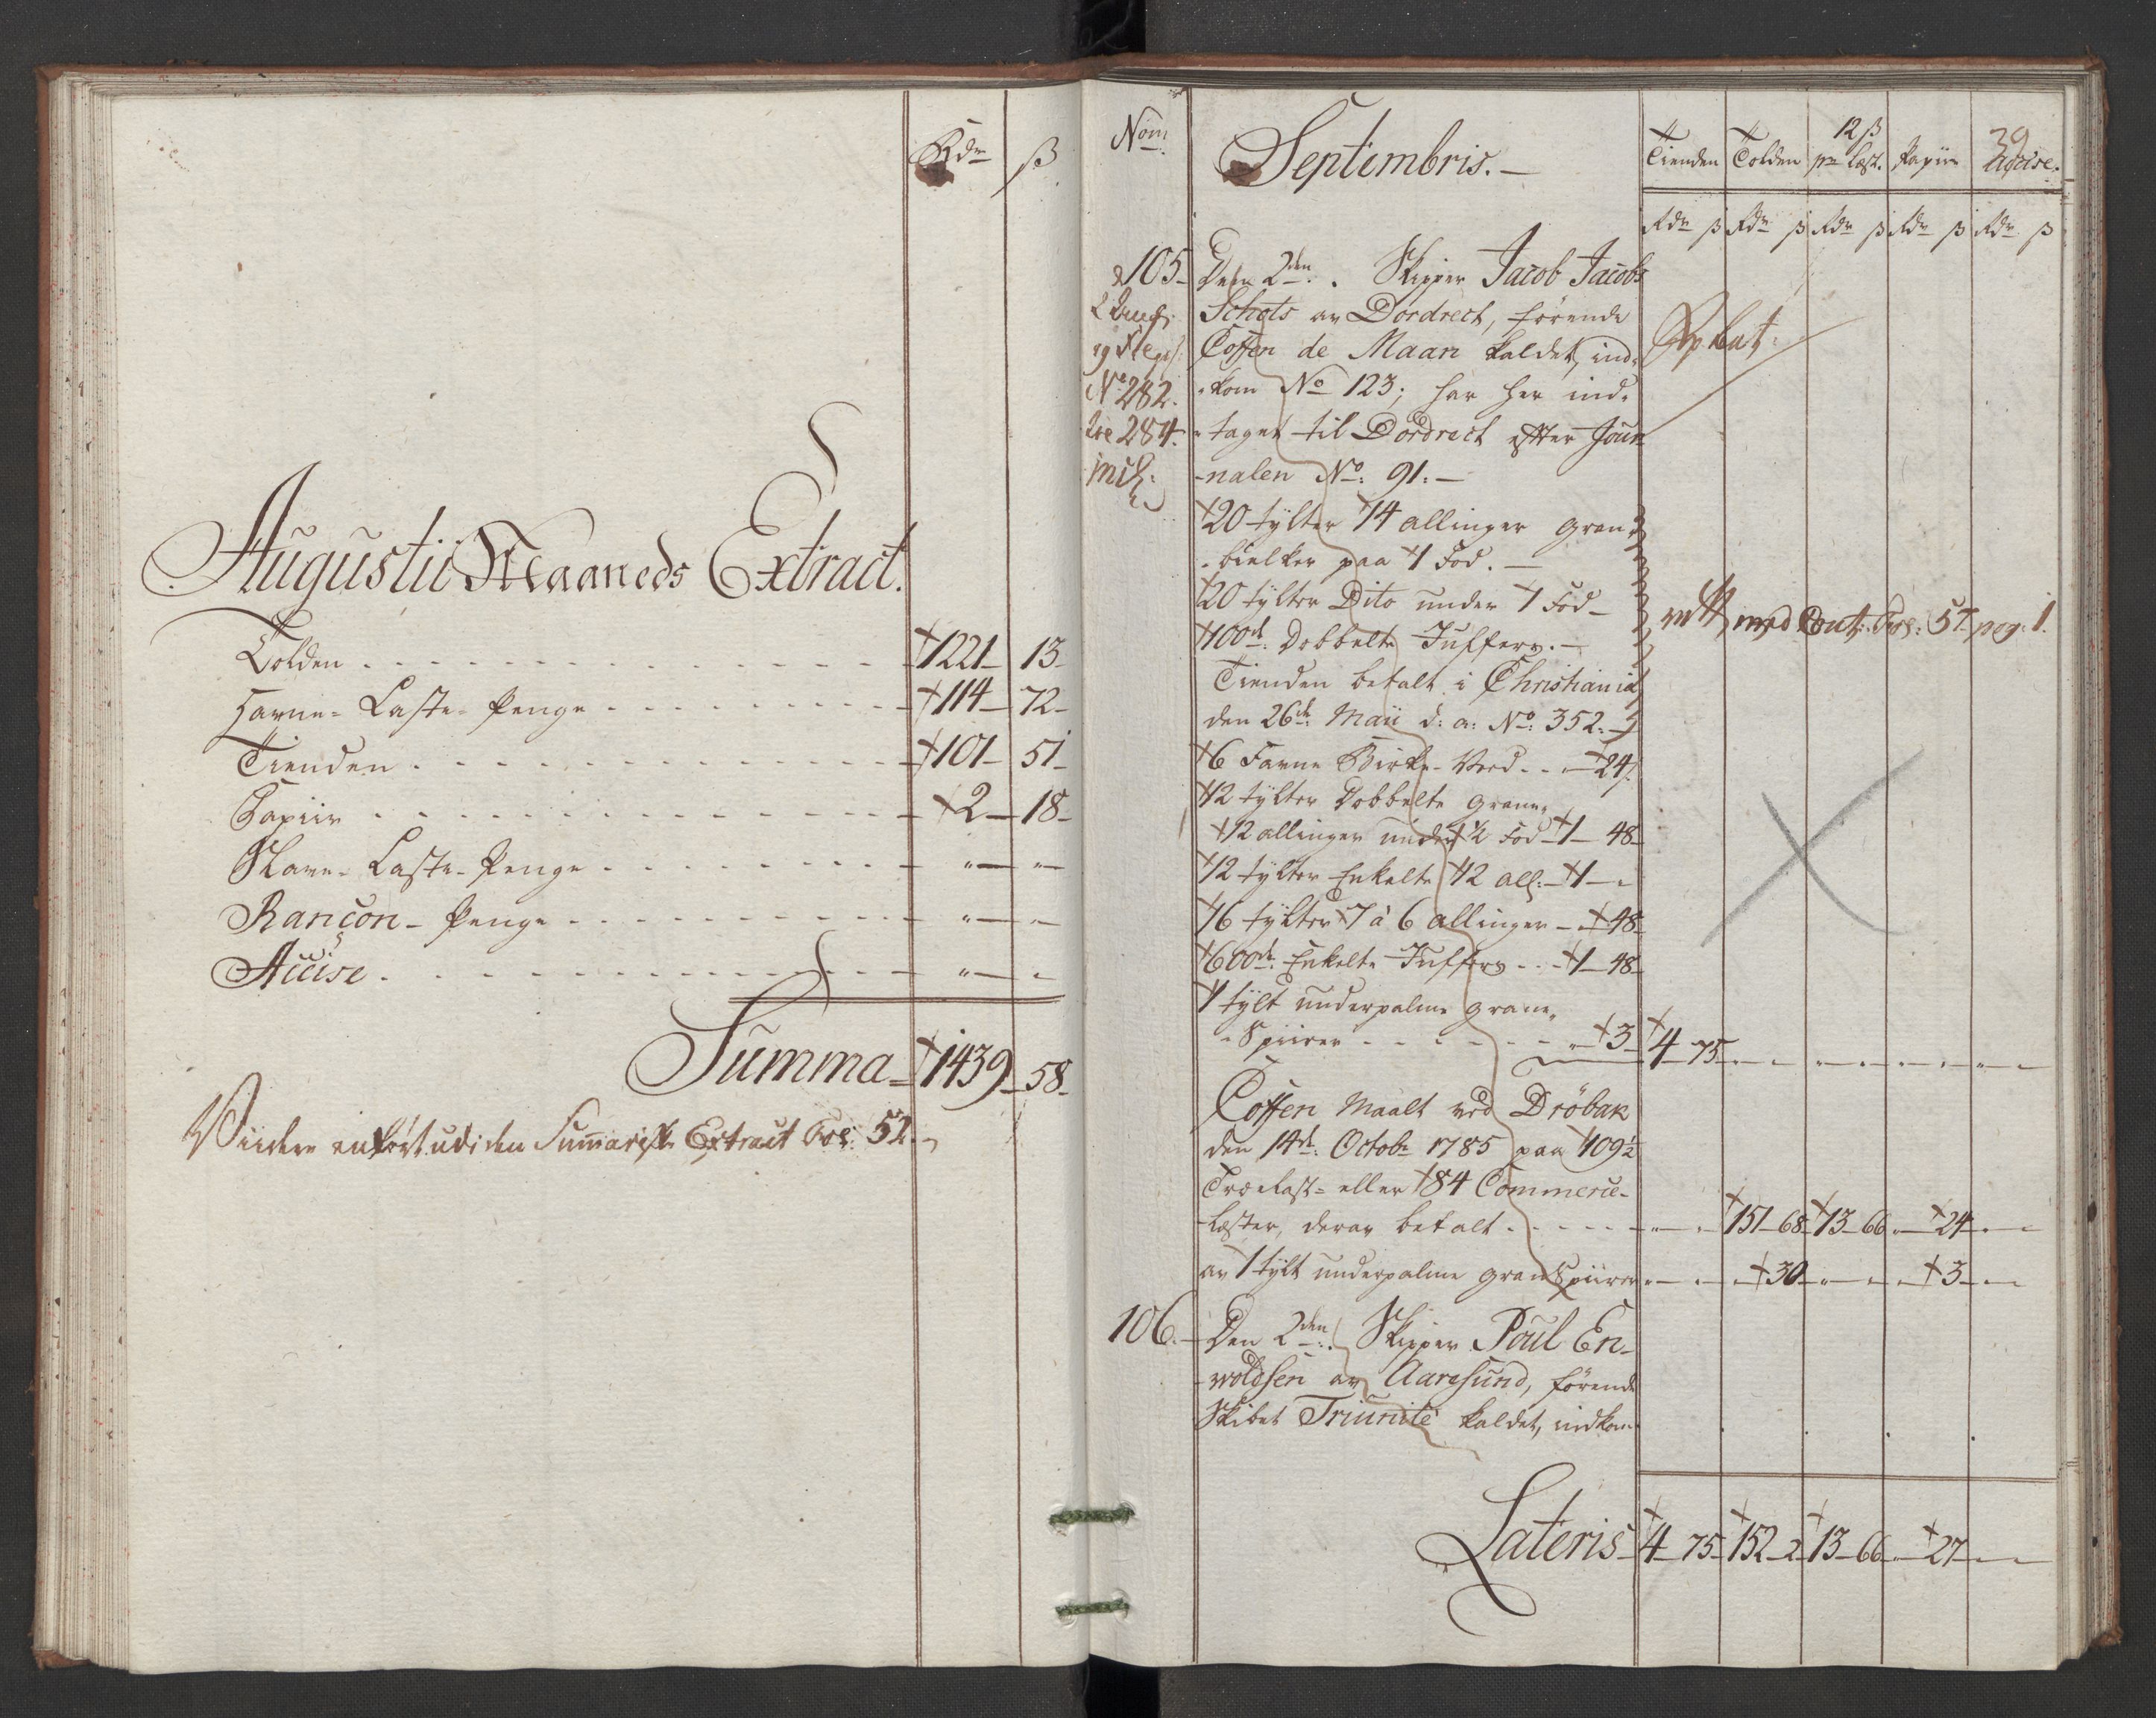 Rdr ß
Augustii Maaneds Extract.
Tolden 1221 - 13 -
Havne-Laste-Penge 114 - 72 -
Tienden 101 - 51 -
Papiir 2 - 18 -
Slave-Laste-Penge " - "
Rançon-Penge " - "
Accise " - "
Summa 1439 - 58 -
Viidere anført udi den Summariske Extract Fol: 52.
39
Nom
Septembris. -
Tienden Tolden 12 ß pr Læst. Papiir Accise.
Rdr ß Rdr ß Rdr ß Rdr ß Rdr ß
105 - Den 2den. Skipper Jacob Jacobs
Schots av Dordrecht, førende
Coffen de Maan kaldet, ind-
kom No 123; har her ind-
taget til Dordrect efter Jour
-nalen No: 91: -
No 282.
284.
20 tylter 14 allinger gran-
bielker paa 1 Fod. -
20 tylter Dito under 1 Fod -
100d: Dobbelte Juffers. -
Tienden betalt i Christiania
den 26de Maii d: a: No: 352. -
med Fol: 57 pag: 1.
6 Favne Birke-Veed - " - 24 ß.
12 tylter Dobbelte grane,
12 allinger under ½ Fod - 1 - 48 -
12 tylter Enkelte 12 all: - 1 - "
16 tylter 7 à 6 allinger - " 48 -
600d: Enkelte Juffers - - 1 - 48 -
1 tylt underpalme grane,
Spiirer - - - - - - " - 3 - 4 - 75 -
Coffen Maalt ved Drøbak
den 14de: Octobr 1785 paa 109½
Trælast- eller 84 Commerce-
Læster, derav betalt - - - - " - " 151 - 68 - 13 - 66 - " - 24 - " - "
av 1 tylt underpalme gran Spiirer " - " - " - 30 - " - " - " - 3 - " - "
106. - Den 2den: Skipper Poul En-
-woldsen av Aarøsund, førende
Skibet Triunité kaldet, indkom
Lateris - 4 - 75 - 152 - 2 - 13 - 66 - " - 27 - " - "